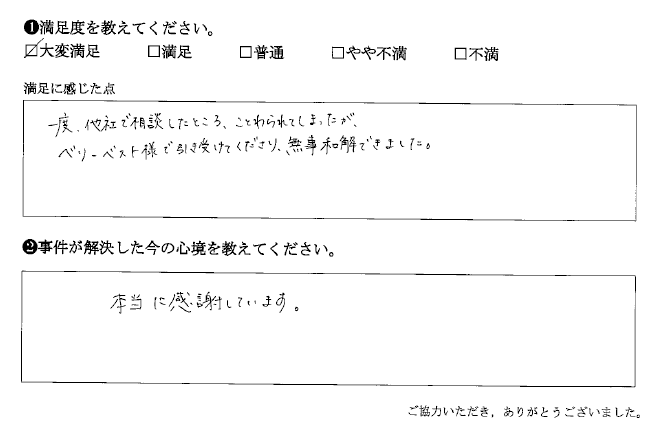 ❶満足度を教えてください。
☑大変満足 □満足 □普通 □やや不満 □不満
満足に感じた点
一度、他社で相談したところ、ことわられてしまったが、
ベリーベスト様で引き受けてくださり、無事和解できました。
❷事件が解決した今の心境を教えてください。
本当に感謝しています。
ご協力いただき，ありがとうございました。